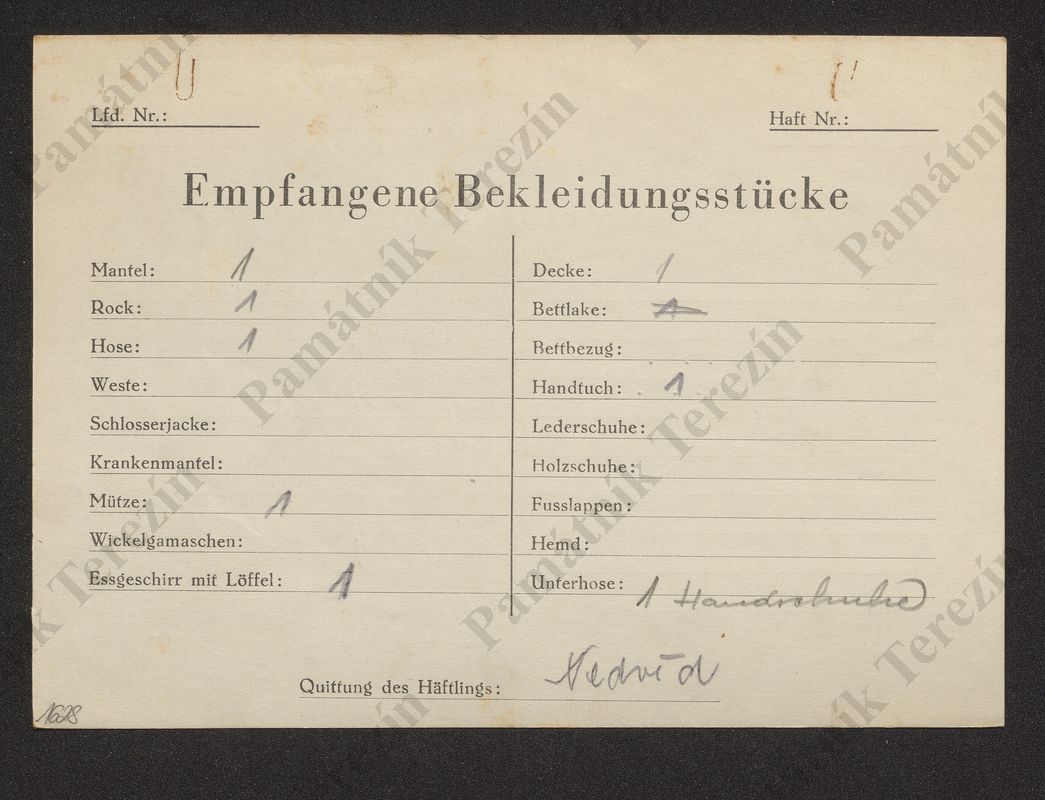 Lfd. Nr.:
Haft Nr.:
Empfangene Bekleidungsstücke
Mantel: 1
Rock: 1
Hose: 1
Weste:
Schlosserjacke:
Krankenmantel:
Mütze: 1
Wickelgamaschen:
Essgeschirr mit Löffel: 1
Decke: 1
Bettlake: 1
Bettbezug:
Handtuch: 1
Lederschuhe:
Holzschuhe:
Fusslappen:
Hemd:
Unterhose: 1 Handschuhe
Quittung des Häftlings: Nedvěd
1628
Památník Terezín